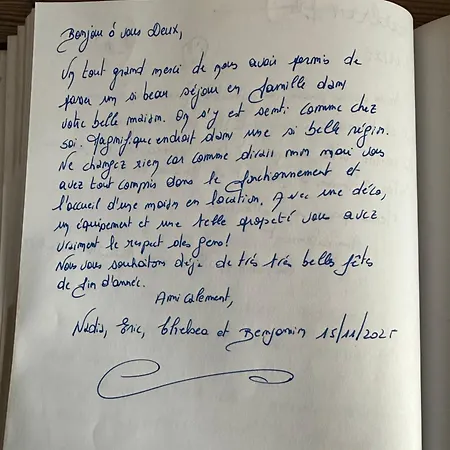 Bonjour à vous Deux,
Un tout grand merci de nous avoir permis de
passer un si beau séjour en famille dans
votre belle maison. On s'y est senti comme chez
soi. Magnifique endroit dans une si belle région.
Ne changez rien car comme dirais mon mari vous
avez tout compris dans le fonctionnement et
l'accueil d'une maison en location. Avec une déco,
un équipement et une telle propreté vous avez
vraiment le respect des gens!
Nous vous souhaitons déjà de très très belles fêtes
de fin d'année.
Amicalement,
Nadia, Eric, Chelsea et Benjamin 15/11/2025